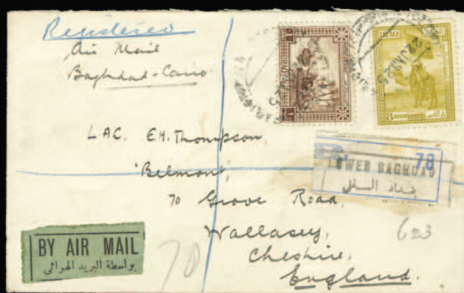 Registered
Air Mail
Baghdad - Cairo.
L.A.C. E.H. Thompson,
'Belmont',
70 Grove Road,
Wallasey,
Cheshire,
England.
78
BAGHDAD
بغداد
BY AIR MAIL
بواسطة البريد الهوائي
70
623